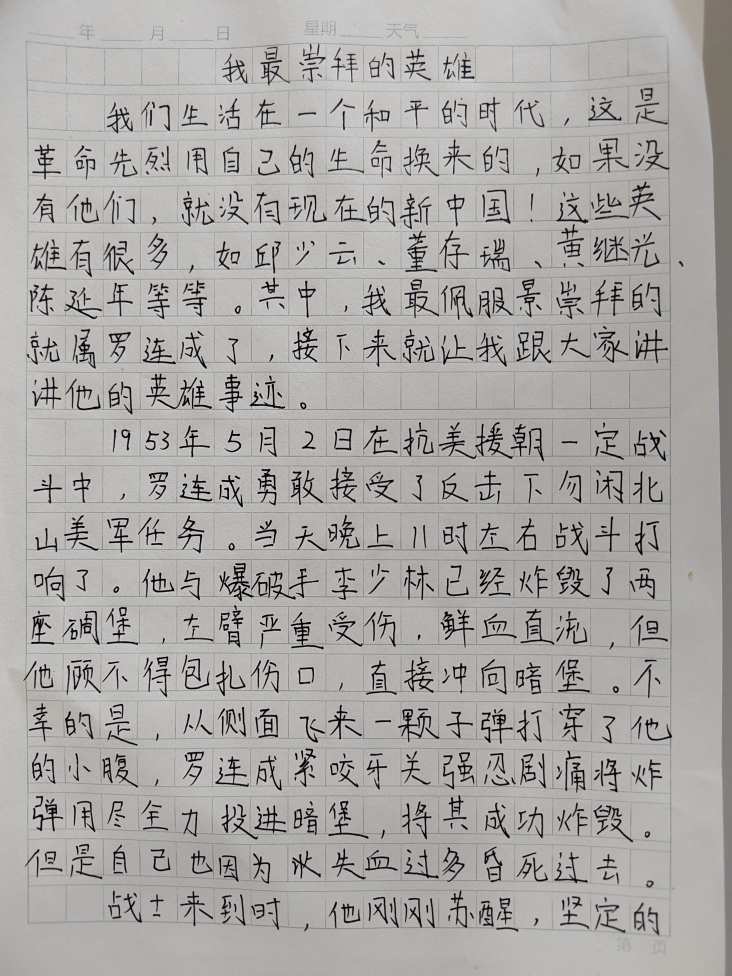 年 月 日 星期 天气
我最崇拜的英雄
我们生活在一个和平的时代，这是
革命先烈用自己的生命换来的，如果没
有他们，就没有现在的新中国！这些英
雄有很多，如邱少云、董存瑞、黄继光、
陈延年等等。其中，我最佩服景崇拜的
就属罗连成了，接下来就让我跟大家讲
讲他的英雄事迹。
1953年5月2日在抗美援朝一定战
斗中，罗连成勇敢接受了反击下勿闲北
山美军任务。当天晚上11时左右战斗打
响了。他与爆破手李少林已经炸毁了两
座碉堡，左臂严重受伤，鲜血直流，但
他顾不得包扎伤口，直接冲向暗堡。不
幸的是，从侧面飞来一颗子弹打穿了他
的小腹，罗连成紧咬牙关强忍剧痛将炸
弹用尽全力投进暗堡，将其成功炸毁。
但是自己也因为失血过多昏死过去。
战士来到时，他刚刚苏醒，坚定的
第 页